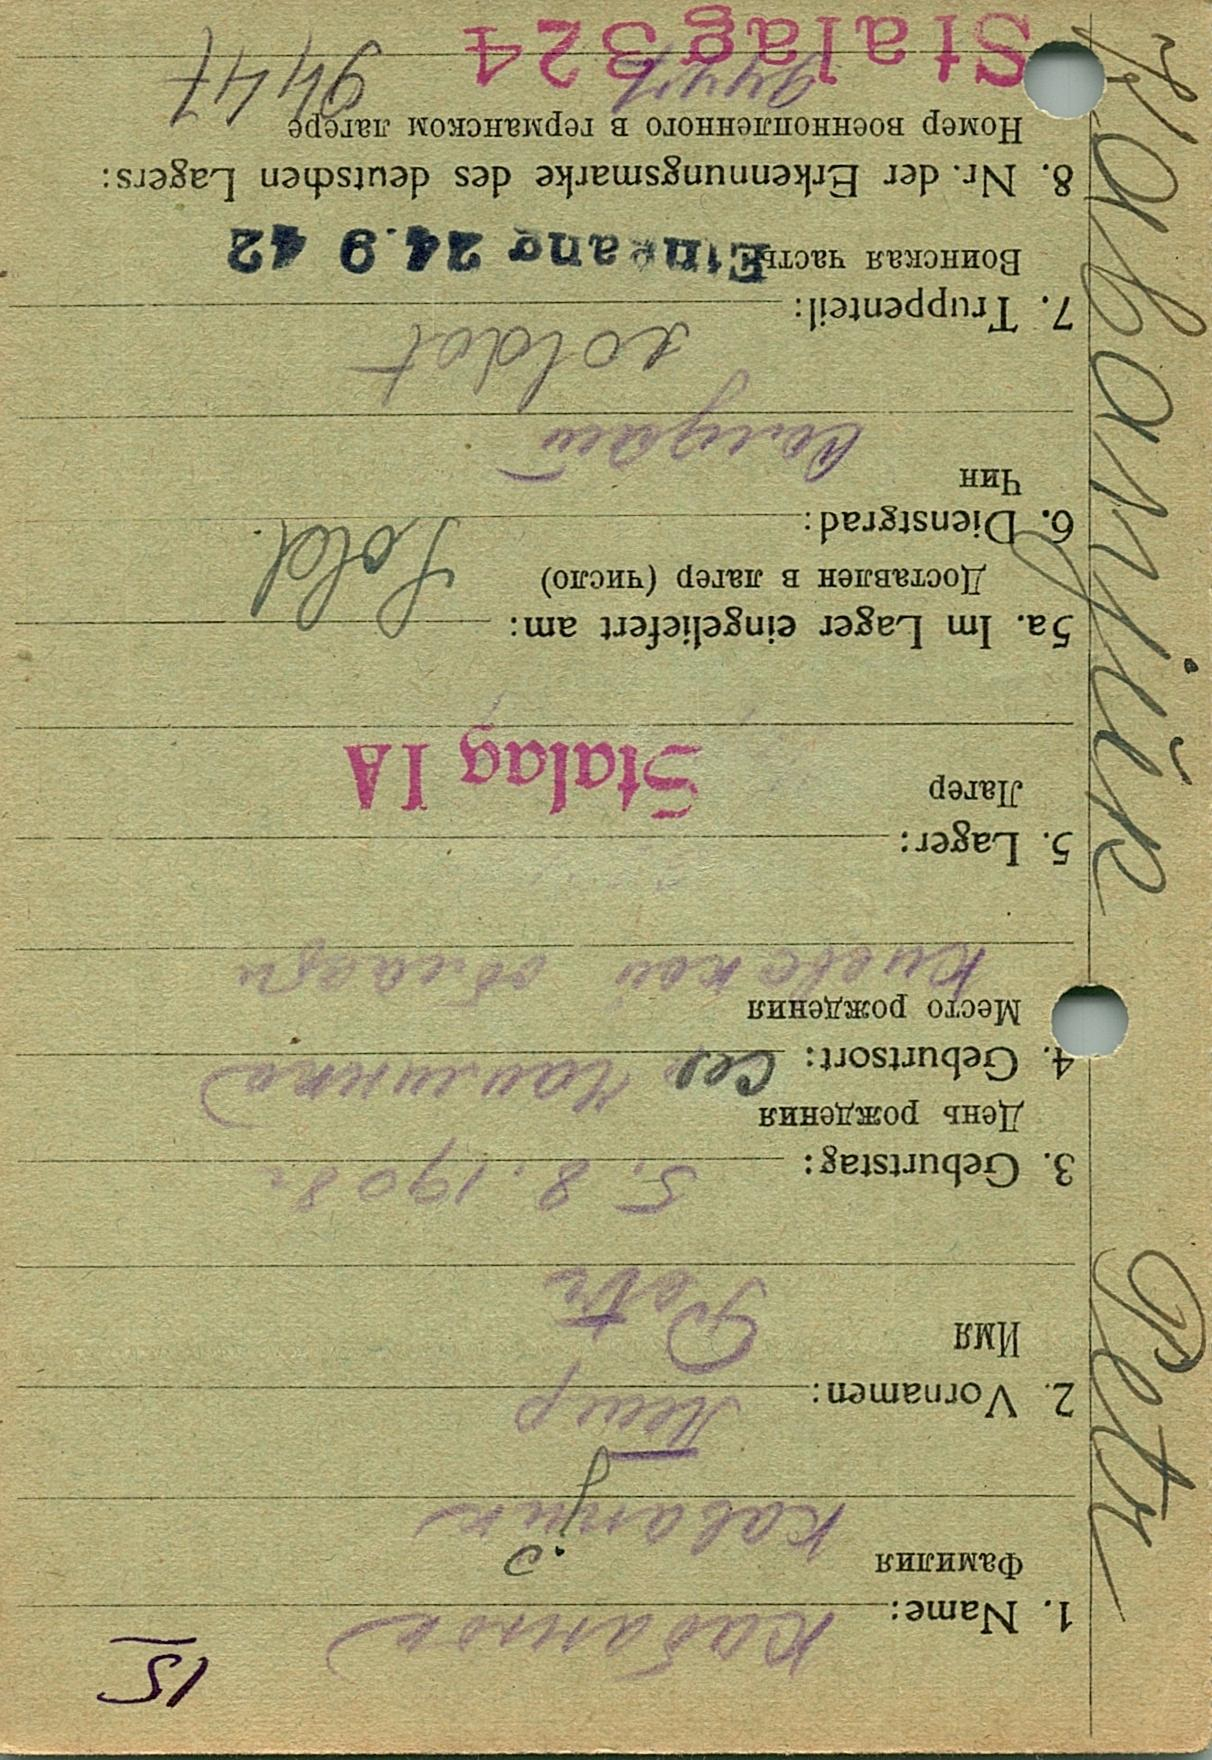 15
1. Name: Кабанюк
Фамилия Kabanjuk
2. Vornamen: Петр
Имя Petr
3. Geburtstag: 5.8.1908 г
День рождения
4. Geburtsort: сел
Место рождения
Киевской области
5. Lager:
Лагер Stalag IA
5a. Im Lager eingeliefert am:
Доставлен в лагер (число) Sold.
6. Dienstgrad:
Чин солдат
soldat
7. Truppenteil:
Воинская часть Eingang 24.9 42
8. Nr. der Erkennungsmarke des deutschen Lagers:
Номер военнопленного в германском лагере
9447 9447
Stalag 324
Kabanjŭk Petr